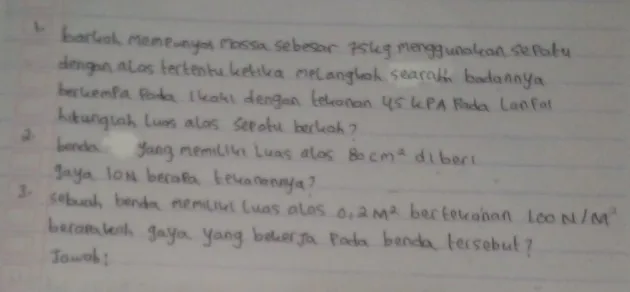 1. barkah mempunyai massa sebesar 75 kg menggunakan sepatu
dengan alas tertentu ketika melangkah searah badannya
bertumpu pada 1 kaki dengan tekanan 45 kPA pada lantai
hitunglah luas alas sepatu berkah?
2. benda yang memiliki luas alas 80 cm² diberi
gaya 10N berapa tekanannya?
3. sebuah benda memiliki luas alas 0,2 M² bertekanan 100 N/M²
berapakah gaya yang bekerja pada benda tersebut?
Jawab: